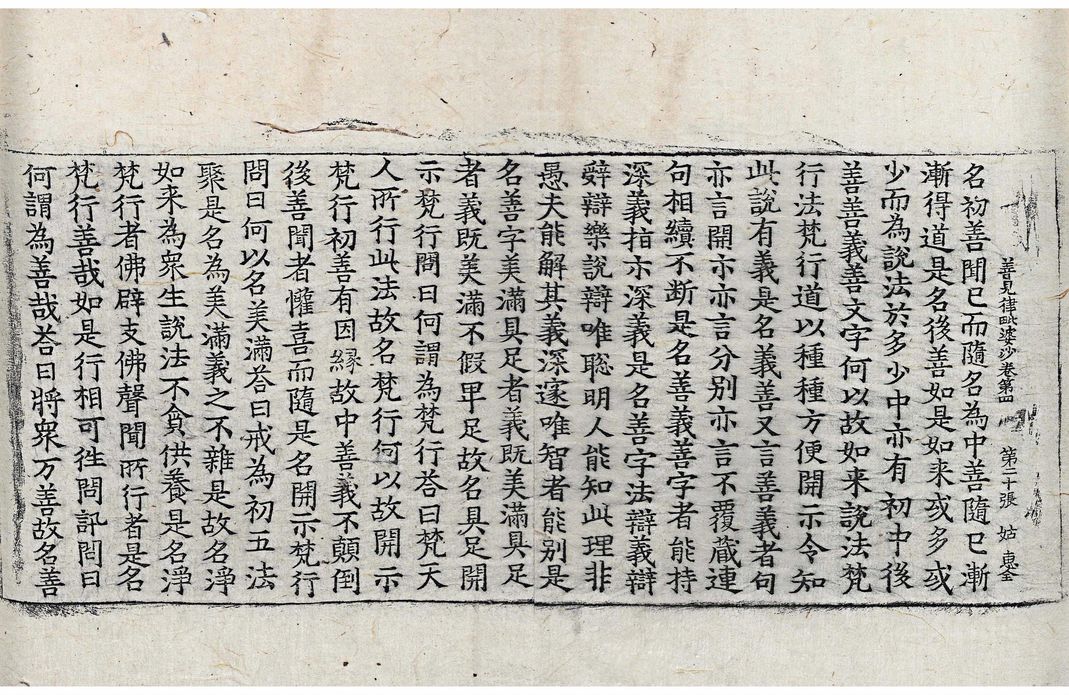 善見律毗婆沙卷第四 第二十張 姑
名初善聞已而隨名為中善隨已漸
漸得道是名後善如是如来或多或
少而為說法於多少中亦有初中後
善善義善文字何以故如来說法梵
行法梵行道以種種方便開示令知
此說有義是名義善又言善義者句
亦言開亦亦言分別亦言不覆蔵連
句相續不断是名善義善字者能持
深義指亦深義是名善字法辯義辯
辤辯樂說辯唯聡明人能知此理非
愚夫能解其義深邃唯智者能別是
名善字美滿具足者義既美滿具足
者義既美滿不假甲足故名具足開
示梵行問曰何謂為梵行荅曰梵天
人所行此法故名梵行何以故開示
梵行初善有因縁故中善義不顛倒
後善聞者懽喜而隨是名開示梵行
問曰何以名美滿荅曰戒為初五法
聚是名為美滿義之不雜是故名淨
如来為衆生說法不貪供養是名淨
梵行者佛辟支佛聲聞所行者是名
梵行善哉如是行相可徃問訊問曰
何謂為善哉荅曰將衆万善故名善